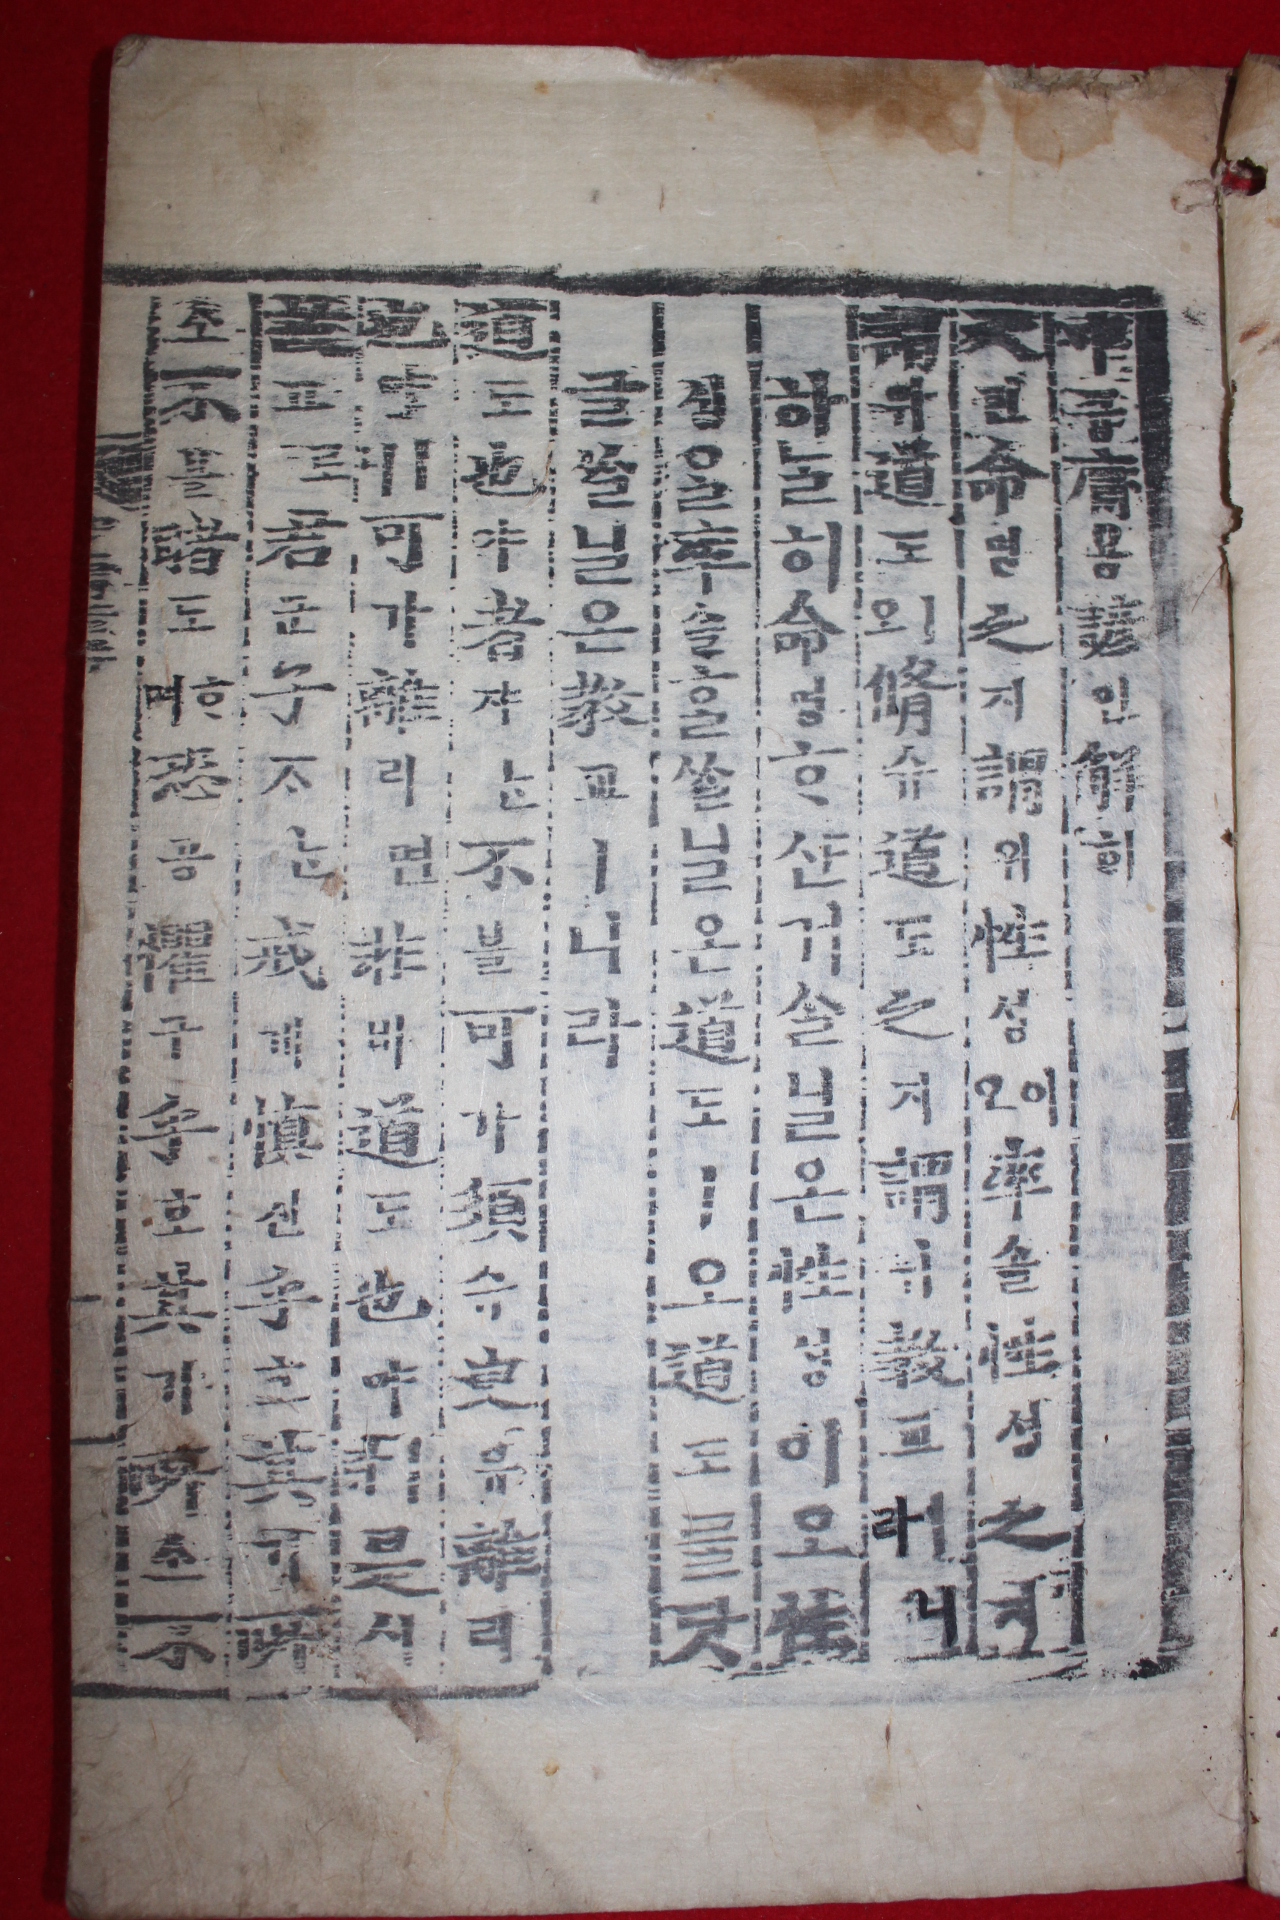 中듕庸용諺언解ᄒᆡ
天텬命명之지謂위性셩이오率솔性셩之지
謂위道도ㅣ오脩슈道도之지謂위敎교ㅣ라니
하ᄂᆞᆯ히命명ᄒᆞ샨거슬닐온性셩이오性
셩을率솔홀ᄡᆞᆯ닐온道도ㅣ오道도를닷
글ᄡᆞᆯ닐온敎교ㅣ니라
道도也야者쟈ᄂᆞᆫ不블可가須슈臾유離리
也야ㅣ니可가離리면非비道도也야ㅣ라是시
故고로君군子ᄌᆞᄂᆞᆫ戒계愼신乎호其기所
소不블睹도ᄒᆞ며恐공懼구乎호其기所소不